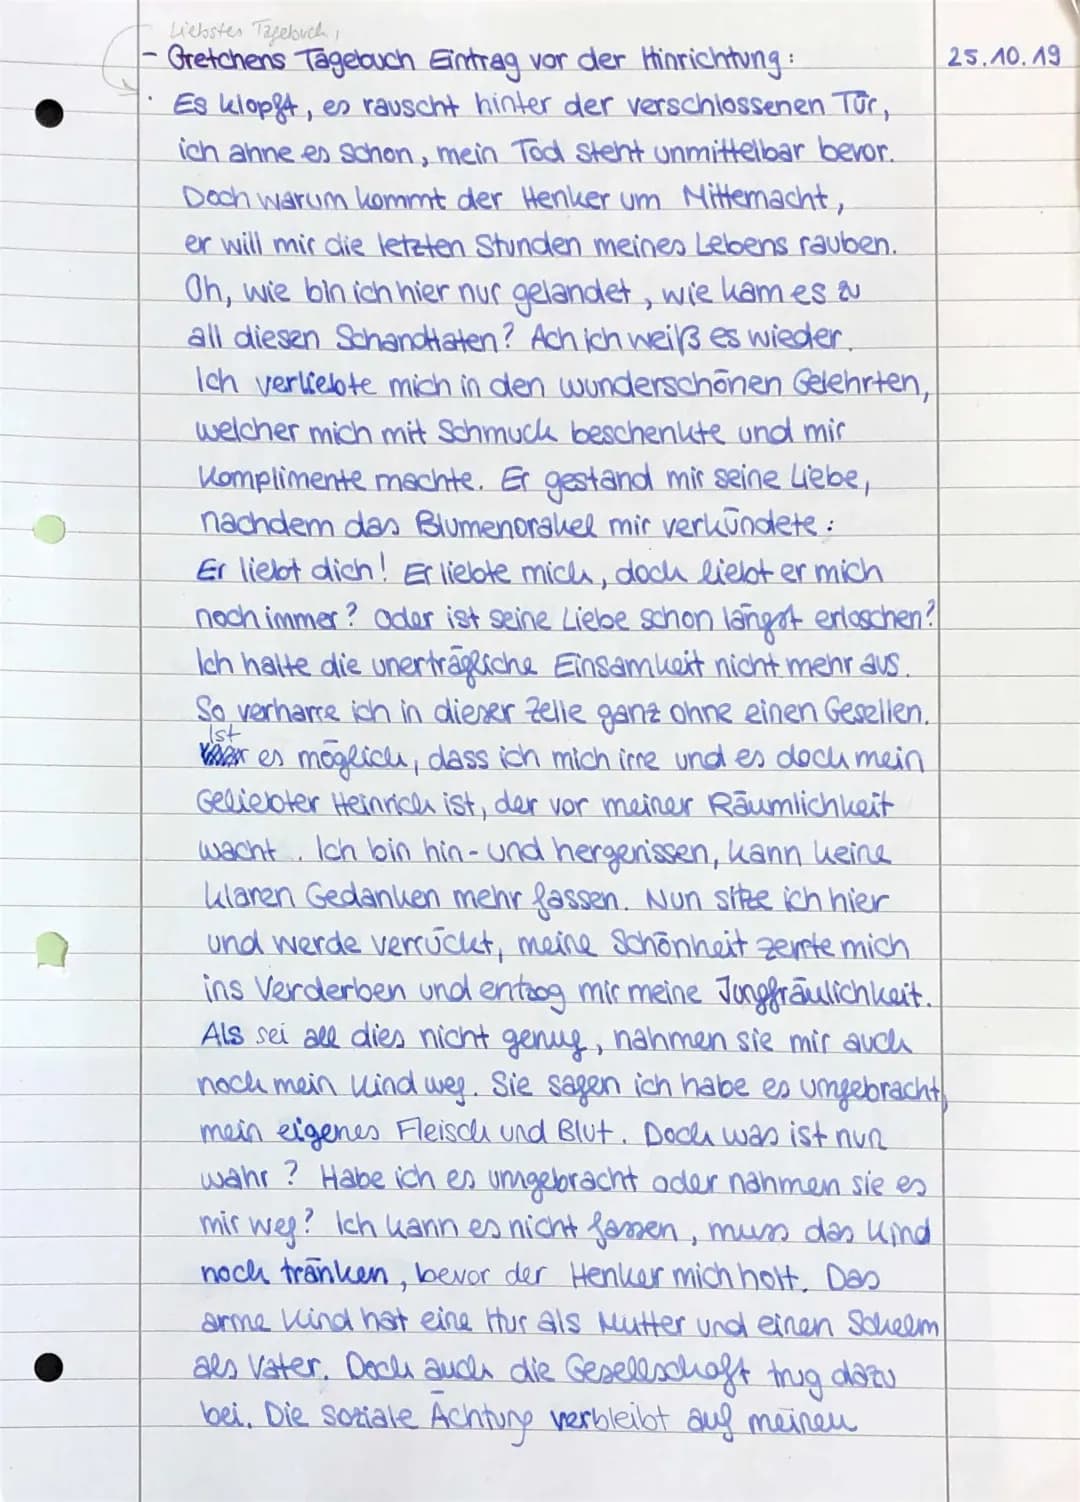 Liebstes Tagebuch,
- Gretchens Tagebuch Eintrag vor der Hinrichtung: 25.10.19
Es klopft, es rauscht hinter der verschlossenen Tür,
ich ahne es schon, mein Tod steht unmittelbar bevor.
Doch warum kommt der Henker um Mitternacht,
er will mir die letzten Stunden meines Lebens rauben.
Oh, wie bin ich hier nur gelandet, wie kam es zu
all diesen Schandtaten? Ach ich weiß es wieder.
Ich verliebte mich in den wunderschönen Gelehrten,
welcher mich mit Schmuck beschenkte und mir
Komplimente machte. Er gestand mir seine Liebe,
nachdem das Blumenorakel mir verkündete:
Er liebt dich! Er liebte mich, doch liebt er mich
noch immer? Oder ist seine Liebe schon längst erloschen?
Ich halte die unerträgliche Einsamkeit nicht mehr aus.
So verharre ich in dieser Zelle ganz ohne einen Gesellen.
Ist es möglich, dass ich mich irre und es doch mein
Geliebter Heinrich ist, der vor meiner Räumlichkeit
wacht. Ich bin hin- und hergerissen, kann keine
klaren Gedanken mehr fassen. Nun sitze ich hier
und werde verrückt, meine Schönheit zerrte mich
ins Verderben und entzog mir meine Jungfräulichkeit.
Als sei all dies nicht genug, nahmen sie mir auch
noch mein Kind weg. Sie sagen ich habe es umgebracht,
mein eigenes Fleisch und Blut. Doch was ist nun
wahr? Habe ich es umgebracht oder nahmen sie es
mir weg? Ich kann es nicht fassen, muss das Kind
noch tränken, bevor der Henker mich holt. Das
arme Kind hat eine Hur als Mutter und einen Schelm
als Vater. Doch auch die Gesellschaft trug dazu
bei. Die soziale Ächtung verbleibt auf meinen